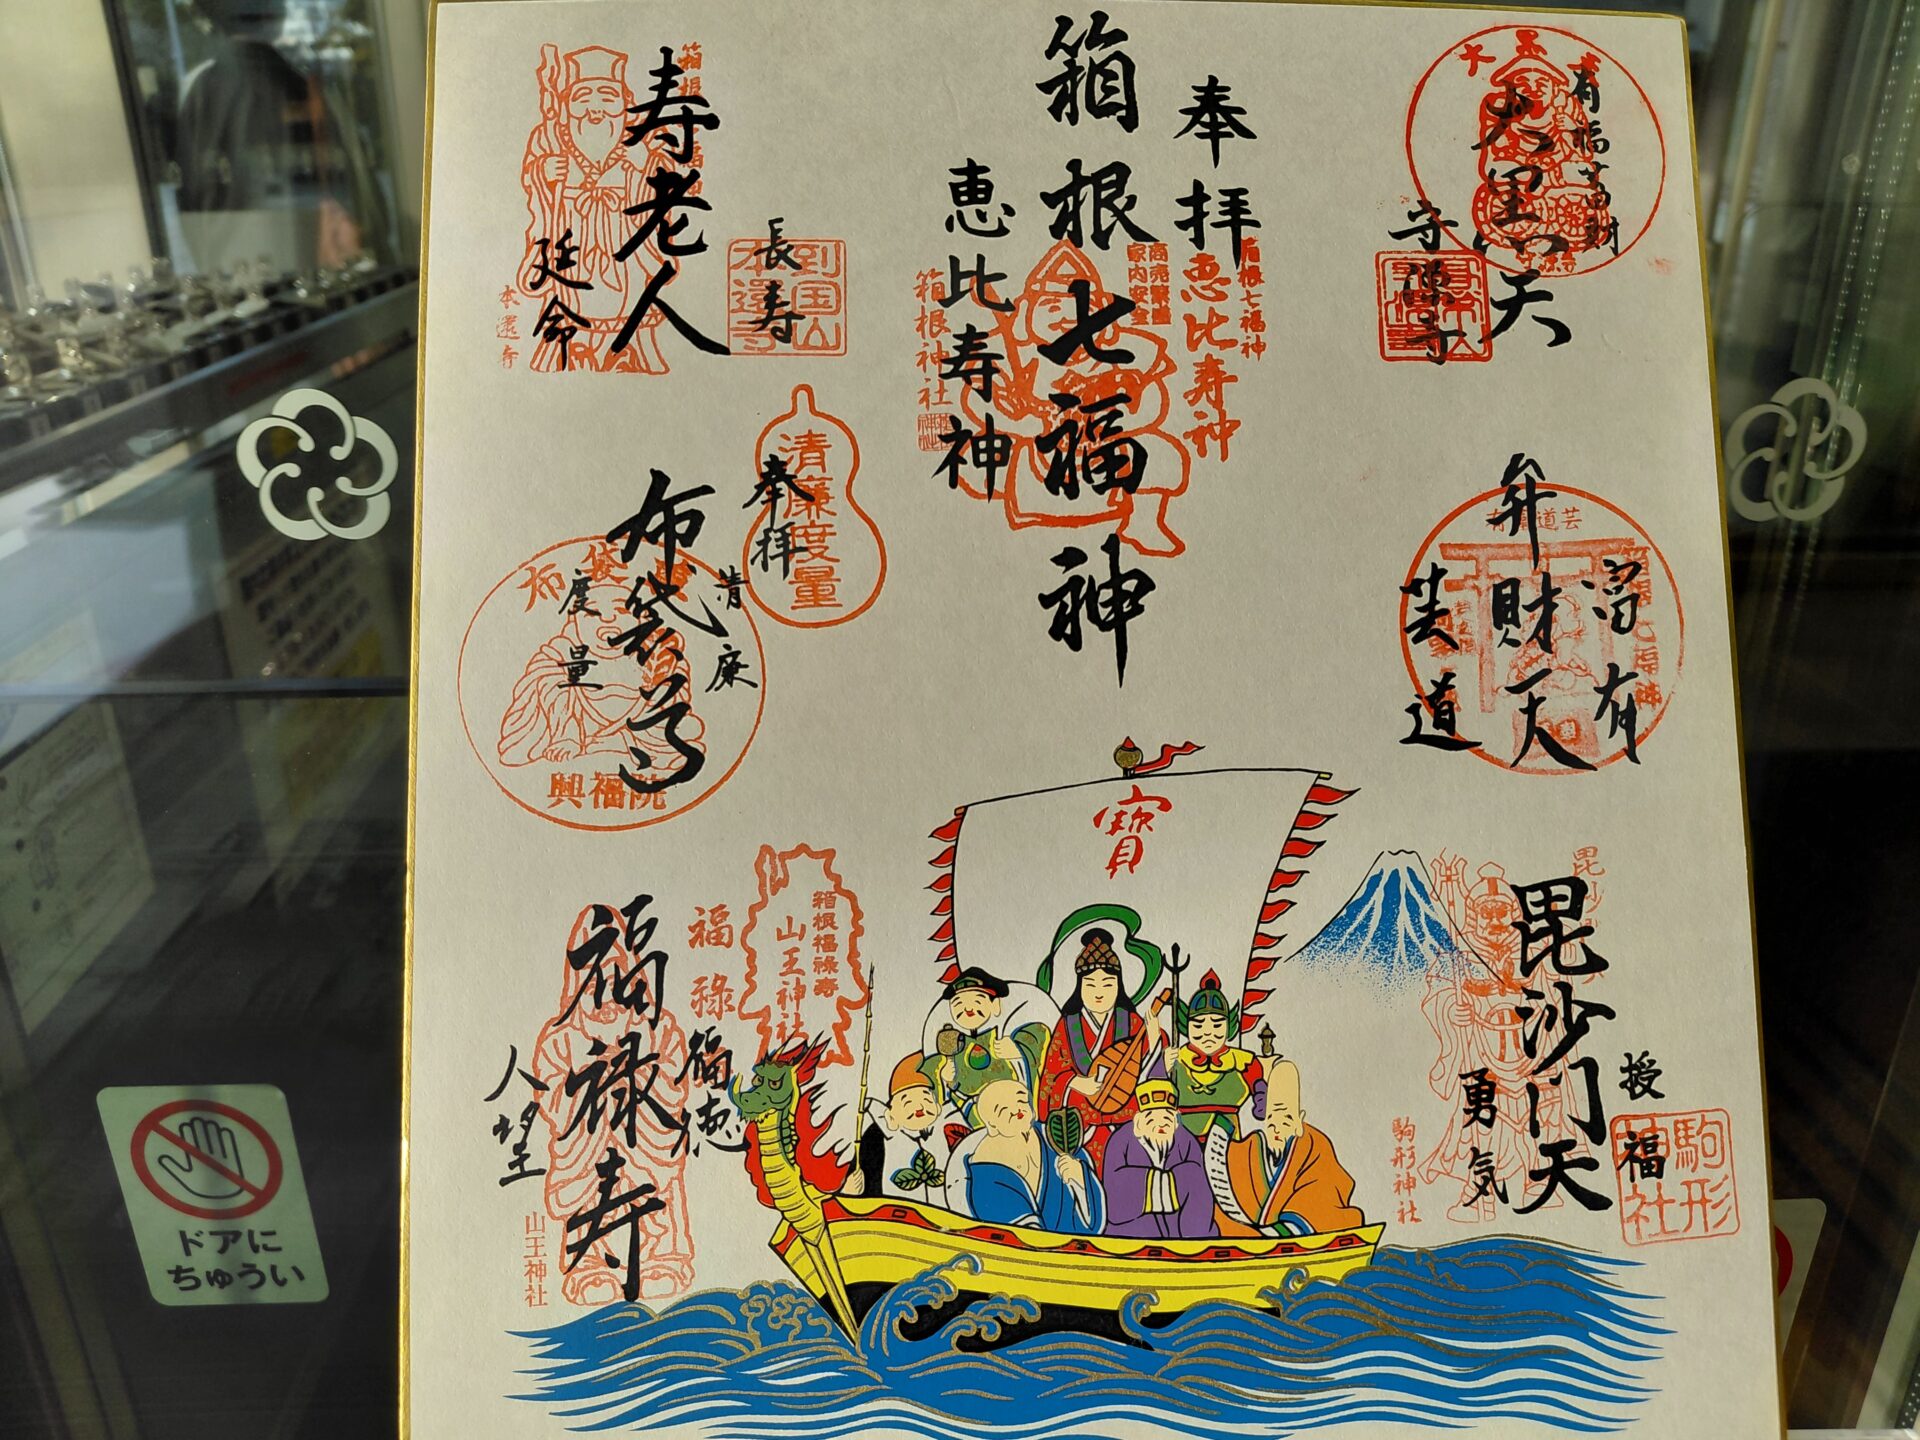 箱根七福神
奉拝
恵比寿神
箱根七福神
恵比寿神
商売繁盛
家内安全
箱根神社
大黒天
有福蓄財
大黒天
守源寺
弁財天
富有
芸道
毘沙門天
授福
勇気
駒形神社
駒形神社
寿老人
長寿
延命
本還寺
到国山
本還寺
布袋尊
奉拝
清廉
度量
清廉度量
布袋尊
興福院
福禄寿
福徳
人望
福禄
箱根福禄寿
山王神社
山王神社
寶
ドアに
ちゅうい